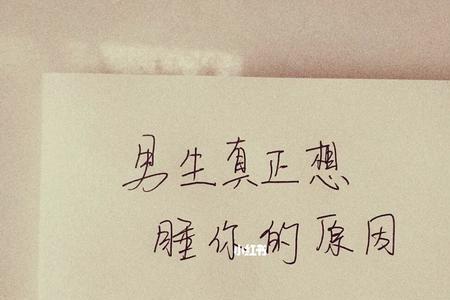 男生真正想
睡你的原因
小红书